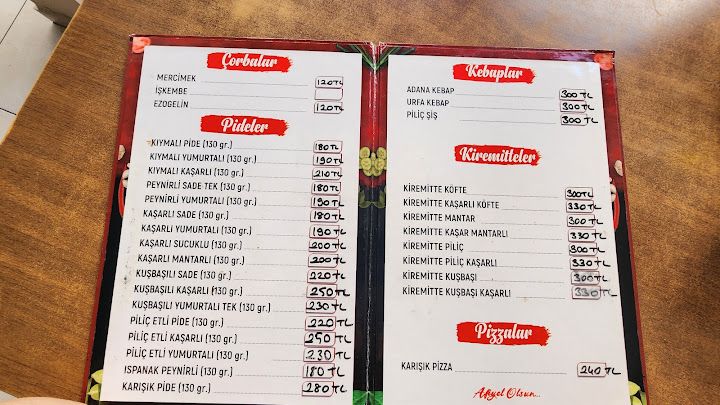 Çorbalar
MERCİMEK 120TL
İŞKEMBE
EZOGELİN 120TL
Pideler
KIYMALI PİDE (130 gr.) 180TL
KIYMALI YUMURTALI (130 gr.) 190TL
KIYMALI KAŞARLI (130 gr.) 210TL
PEYNİRLİ SADE TEK (130 gr.) 180TL
PEYNİRLİ YUMURTALI (130 gr.) 190TL
KAŞARLI SADE (130 gr.) 180TL
KAŞARLI YUMURTALI (130 gr.) 190TL
KAŞARLI SUCUKLU (130 gr.) 200TL
KAŞARLI MANTARLI (130 gr.) 200TL
KUŞBAŞILI SADE (130 gr.) 220TL
KUŞBAŞILI KAŞARLI (130 gr.) 250TL
KUŞBAŞILI YUMURTALI TEK (130 gr.) 230TL
PİLİÇ ETLİ PİDE (130 gr.) 220TL
PİLİÇ ETLİ KAŞARLI (130 gr.) 250TL
PİLİÇ ETLİ YUMURTALI (130 gr.) 230TL
ISPANAK PEYNİRLİ (130 gr.) 180TL
KARIŞIK PİDE (130 gr.) 280TL
Kebaplar
ADANA KEBAP 300TL
URFA KEBAP 300TL
PİLİÇ ŞİŞ 300TL
Kiremitteler
KİREMİTTE KÖFTE 300TL
KİREMİTTE KAŞARLI KÖFTE 330TL
KİREMİTTE MANTAR 300TL
KİREMİTTE KAŞAR MANTARLI 330TL
KİREMİTTE PİLİÇ 300TL
KİREMİTTE PİLİÇ KAŞARLI 330TL
KİREMİTTE KUŞBAŞI 300TL
KİREMİTTE KUŞBAŞI KAŞARLI 330TL
Pizzalar
KARIŞIK PİZZA 240TL
Afiyet Olsun...